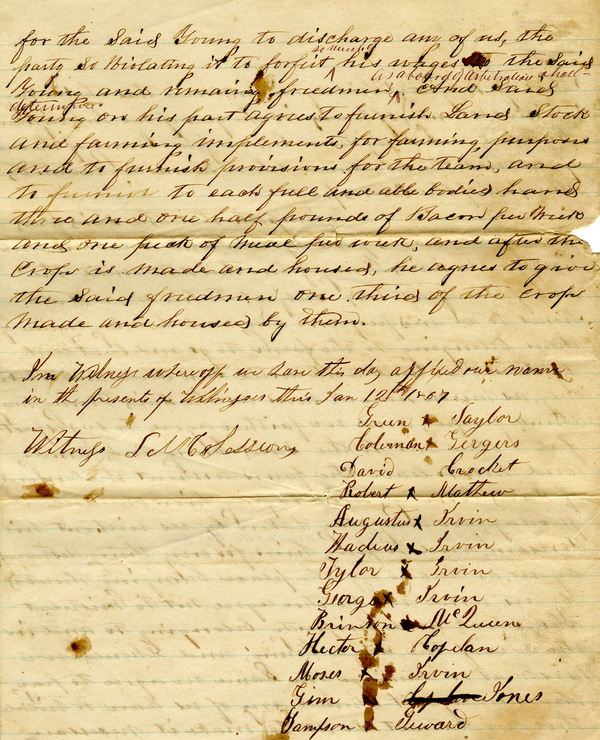 for the said Young to discharge any of us, the
so much of
party so violating it to forfeit his wages to the said
as a board of Arbitration shall
Young and remaining freedmen, And Said
determine
Young on his part agrees to furnish Land Stock
and farming implements, for farming purposes
and to furnish provisions for the team, and
to furnish to each full and able bodied hand
three and one half pounds of Bacon per Week
and one peck of meal per week, and after the
Crop is made and housed, he agrees to give
the said freedmen one third of the crop
made and housed by them.
In Witness whereof we have this day affixed our names
in the presents of Witnesses this Jan 12th 1867
Green x Taylor
Coleman x Gergers
Witness S M Sessions
David Crocket
Robert x Mathew
Augustus x Irvin
Hadius x Irvin
Tylor x Irvin
Gorge x Irvin
Brinson x McQueen
Hector x Copelan
Moses x Irvin
Gim x Jones
Sampson x Seward